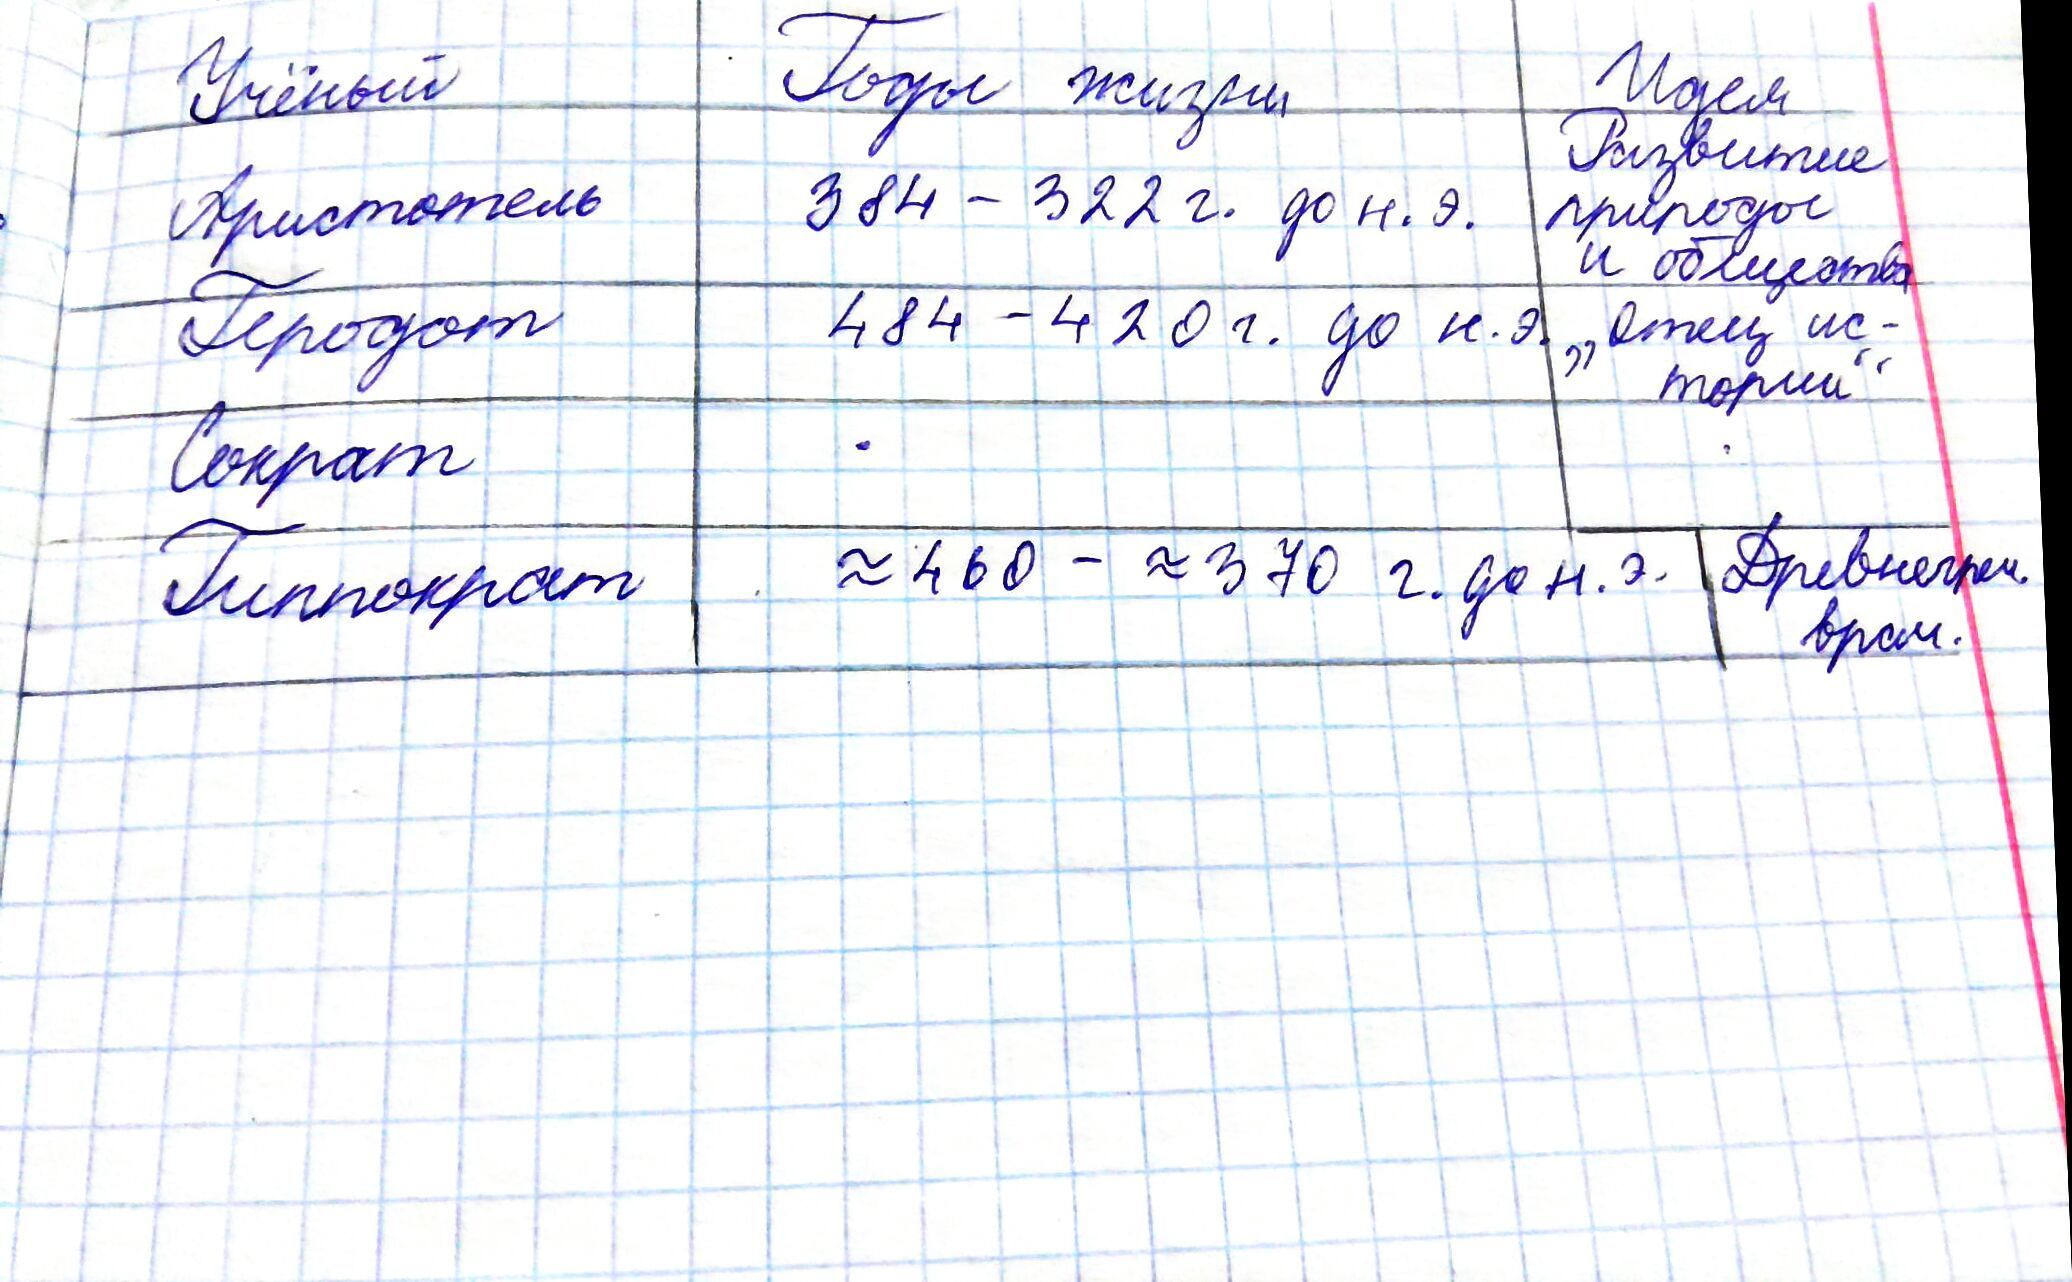 Учёный Годы жизни Идеи
Аристотель 384 - 322 г. до н. э. Развитие
природы
и общества
Геродот 484 - 420 г. до н. э. „Отец ис-
тории“
Сократ
Гиппократ ≈ 460 - ≈ 370 г. до н. э. Древнегреч.
врач.